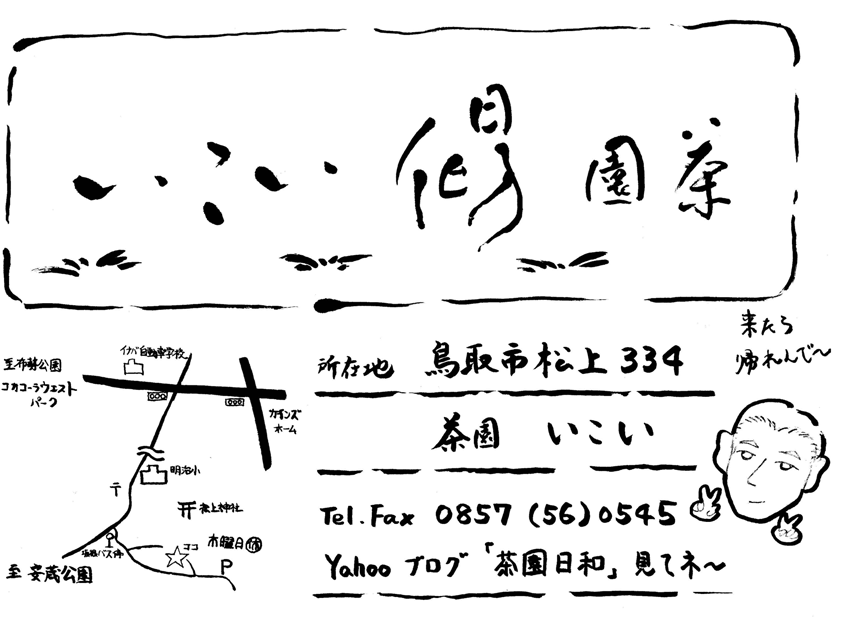 茶園 いこい
来たら
帰れんで〜
所在地 鳥取市松上334
茶園 いこい
Tel.Fax 0857 (56) 0545
Yahoo ブログ「茶園日和」見てネ〜
イナバ自動車学校
至布勢公園
コカコーラウエスト
パーク
カインズ
ホーム
明治小
〒
松上神社
バス停
ココ
木曜日休
P
至 安蔵公園